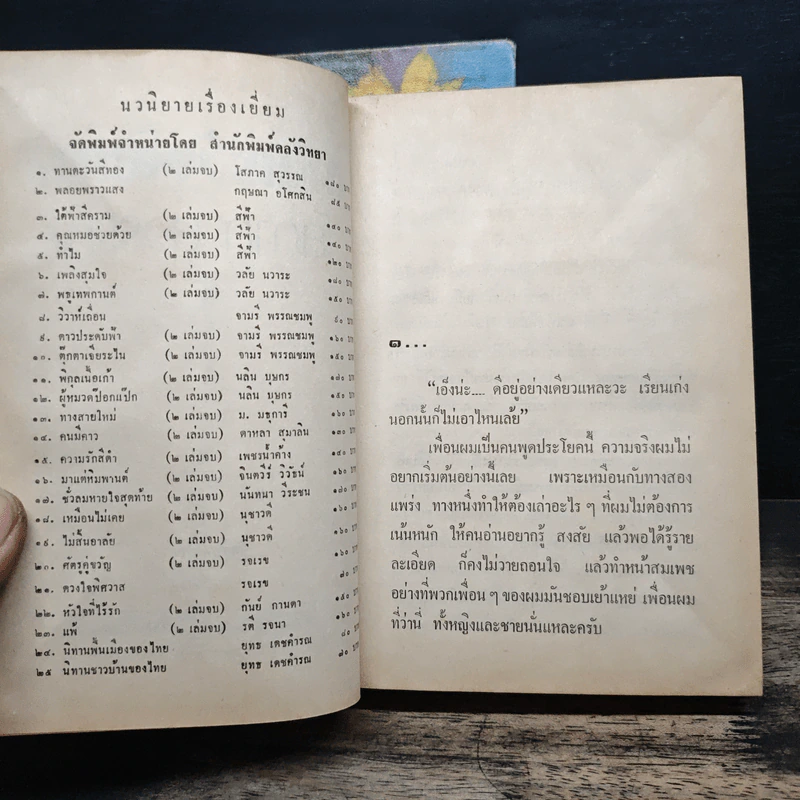 นวนิยายเรื่องเยี่ยม
จัดพิมพ์จำหน่ายโดย สำนักพิมพ์คลังวิทยา
๑. ทานตะวันสีทอง (๒ เล่มจบ) โสภาค สุวรรณ ๑๘๐ บาท
๒. พลอยพราวแสง กฤษณา อโศกสิน ๘๕ บาท
๓. ใต้ฟ้าสีคราม (๒ เล่มจบ) สีฟ้า ๑๔๐ บาท
๔. คุณหมอช่วยด้วย (๒ เล่มจบ) สีฟ้า ๑๔๐ บาท
๕. ทำไม (๒ เล่มจบ) สีฟ้า ๑๒๐ บาท
๖. เพลิงสุมใจ (๒ เล่มจบ) วลัย นวาระ ๑๘๐ บาท
๗. พธูเทพกานต์ (๒ เล่มจบ) วลัย นวาระ ๑๕๐ บาท
๘. วิวาห์เถื่อน จามรี พรรณชมพู ๙๐ บาท
๙. ดาวประดับฟ้า (๒ เล่มจบ) จามรี พรรณชมพู ๑๖๐ บาท
๑๐. ตุ๊กตาเจียระไน (๒ เล่มจบ) จามรี พรรณชมพู ๑๕๐ บาท
๑๑. พิกุลเนื้อเก้า (๒ เล่มจบ) นลิน บุษกร ๑๗๐ บาท
๑๒. ผู้หมวดป๊อกแป๊ก (๒ เล่มจบ) นลิน บุษกร ๑๕๐ บาท
๑๓. ทางสายใหม่ (๒ เล่มจบ) ม. มธุการี ๑๖๐ บาท
๑๔. คนมีคาว (๒ เล่มจบ) ดาหลา สุมาลิน ๑๓๐ บาท
๑๕. ความรักสีดำ (๒ เล่มจบ) เพชรน้ำค้าง ๑๖๐ บาท
๑๖. มาแต่หิมพานต์ (๒ เล่มจบ) จินตวีร์ วิวัธน์ ๑๘๐ บาท
๑๗. ชั่วลมหายใจสุดท้าย (๒ เล่มจบ) นันทนา วีระชน ๑๗๐ บาท
๑๘. เหมือนไม่เคย (๒ เล่มจบ) นุชาวดี ๑๖๐ บาท
๑๙. ไม่สิ้นอาลัย (๒ เล่มจบ) นุชาวดี ๑๖๐ บาท
๒๐. ศัตรูคู่ขวัญ (๒ เล่มจบ) รจเรข
๒๑. ดวงใจพิศวาส รจเรข ๘๐ บาท
๒๒. หัวใจที่ไร้รัก (๒ เล่มจบ) กันย์ กานดา
๒๓. แพ้ (๒ เล่มจบ) รตี รจนา
๒๔. นิทานพื้นเมืองของไทย ยุทธ เดชคำรณ ๘๐ บาท
๒๕ นิทานชาวบ้านของไทย ยุทธ เดชคำรณ ๗๐ บาท
๑...
“เอ็งน่ะ.... ดีอยู่อย่างเดียวแหละวะ เรียนเก่ง
นอกนั้นก็ไม่เอาไหนเล้ย”
เพื่อนผมเป็นคนพูดประโยคนี้ ความจริงผมไม่
อยากเริ่มต้นอย่างนี้เลย เพราะเหมือนกับทางสอง
แพร่ง ทางหนึ่งทำให้ต้องเล่าอะไร ๆ ที่ผมไม่ต้องการ
เน้นหนัก ให้คนอ่านอยากรู้ สงสัย แล้วพอได้รู้ราย
ละเอียด ก็คงไม่วายถอนใจ แล้วทำหน้าสมเพช
อย่างที่พวกเพื่อน ๆ ของผมมันชอบเย้าแหย่ เพื่อนผม
ที่ว่านี่ ทั้งหญิงและชายนั่นแหละครับ